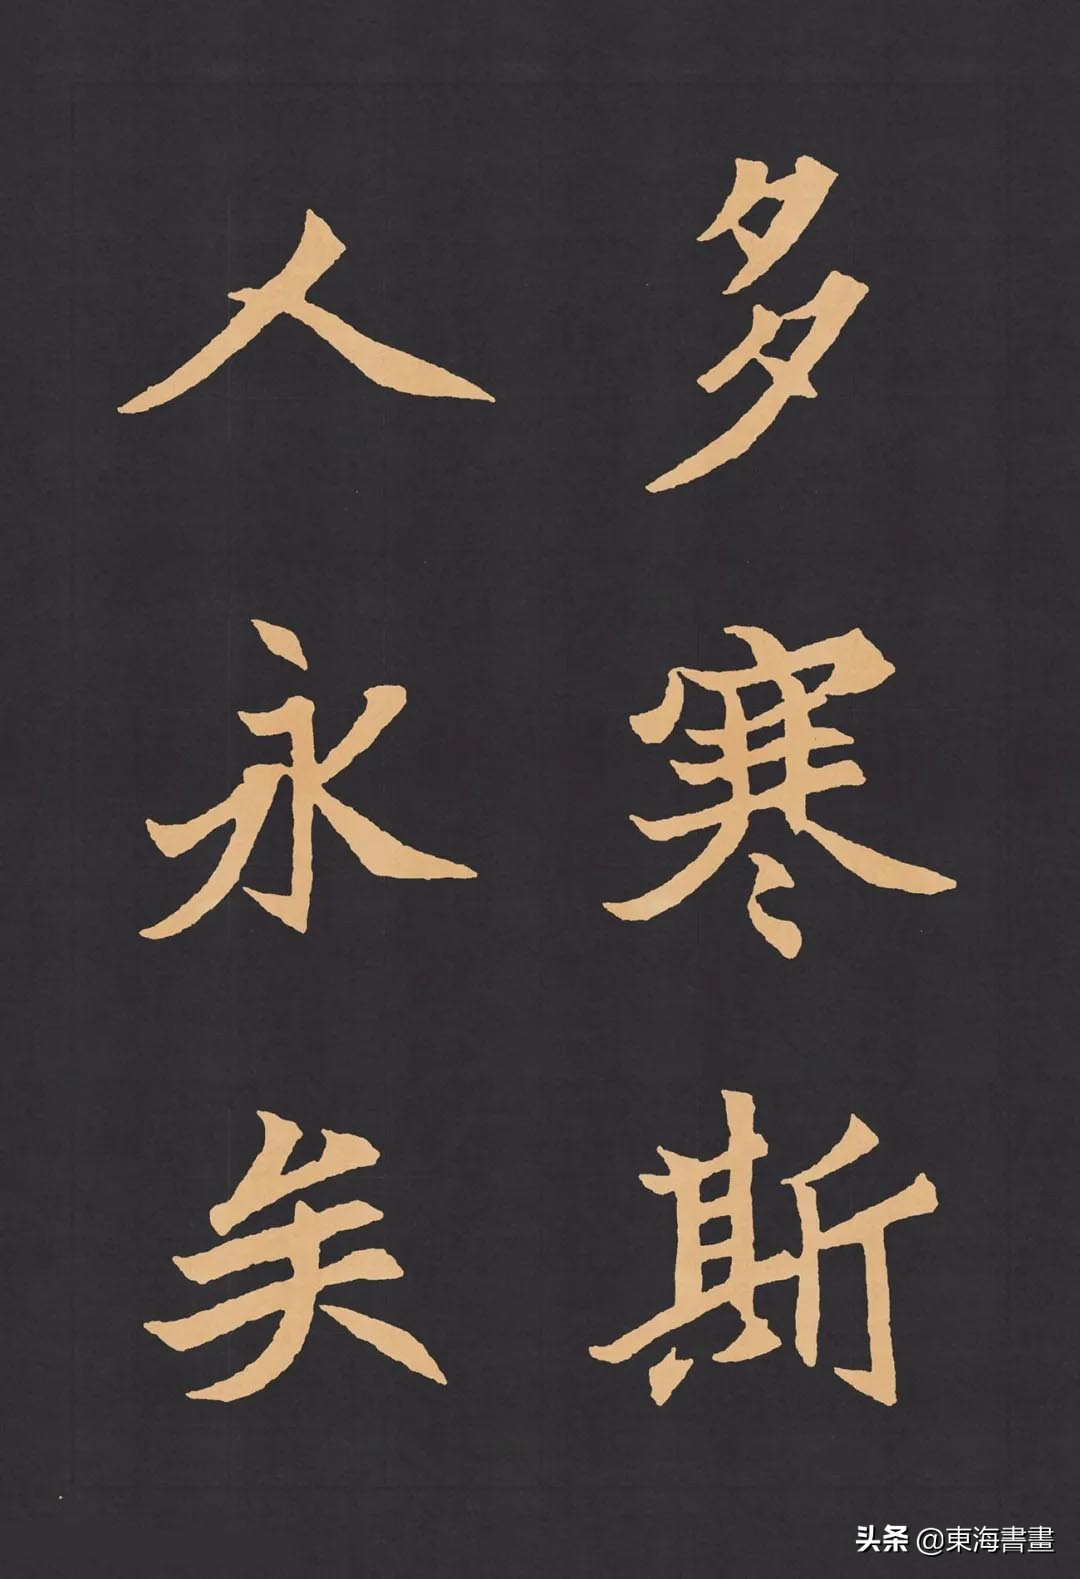 多寒斯
人永矣
头条 @東海書畫